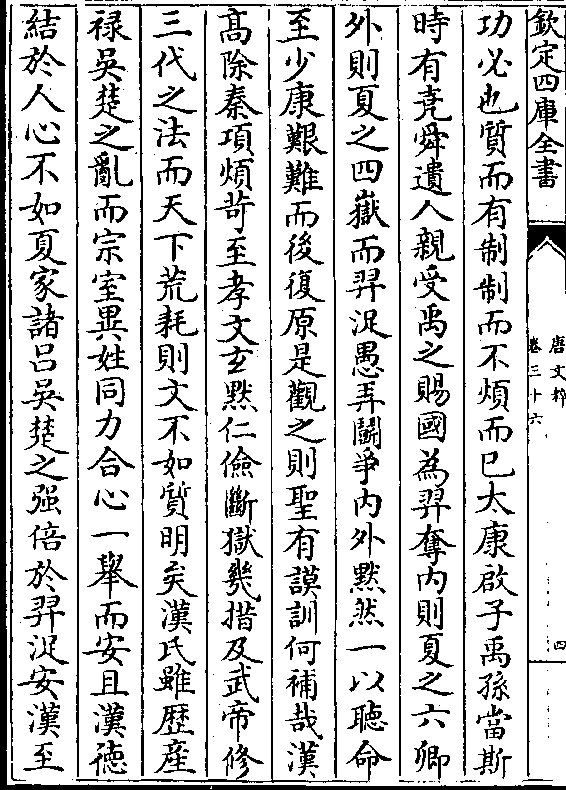 欽定四庫全書
唐文粹
卷三十六
四
功必也質而有制制而不煩而已太康啟子禹孫當斯
時有堯舜遺人親受禹之賜國為羿奪内則夏之六卿
外則夏之四嶽而羿浞愚弄鬭爭内外黙然一以聽命
至少康艱難而後復原是觀之則聖有謨訓何補哉漢
髙除秦項煩苛至孝文𤣥黙仁儉斷獄㡬措及武帝修
三代之法而天下荒耗則文不如質明矣漢氏雖歴産
禄吳楚之亂而宗室異姓同力合心一舉而安且漢徳
結於人心不如夏家諸吕吳楚之强倍於羿浞安漢至